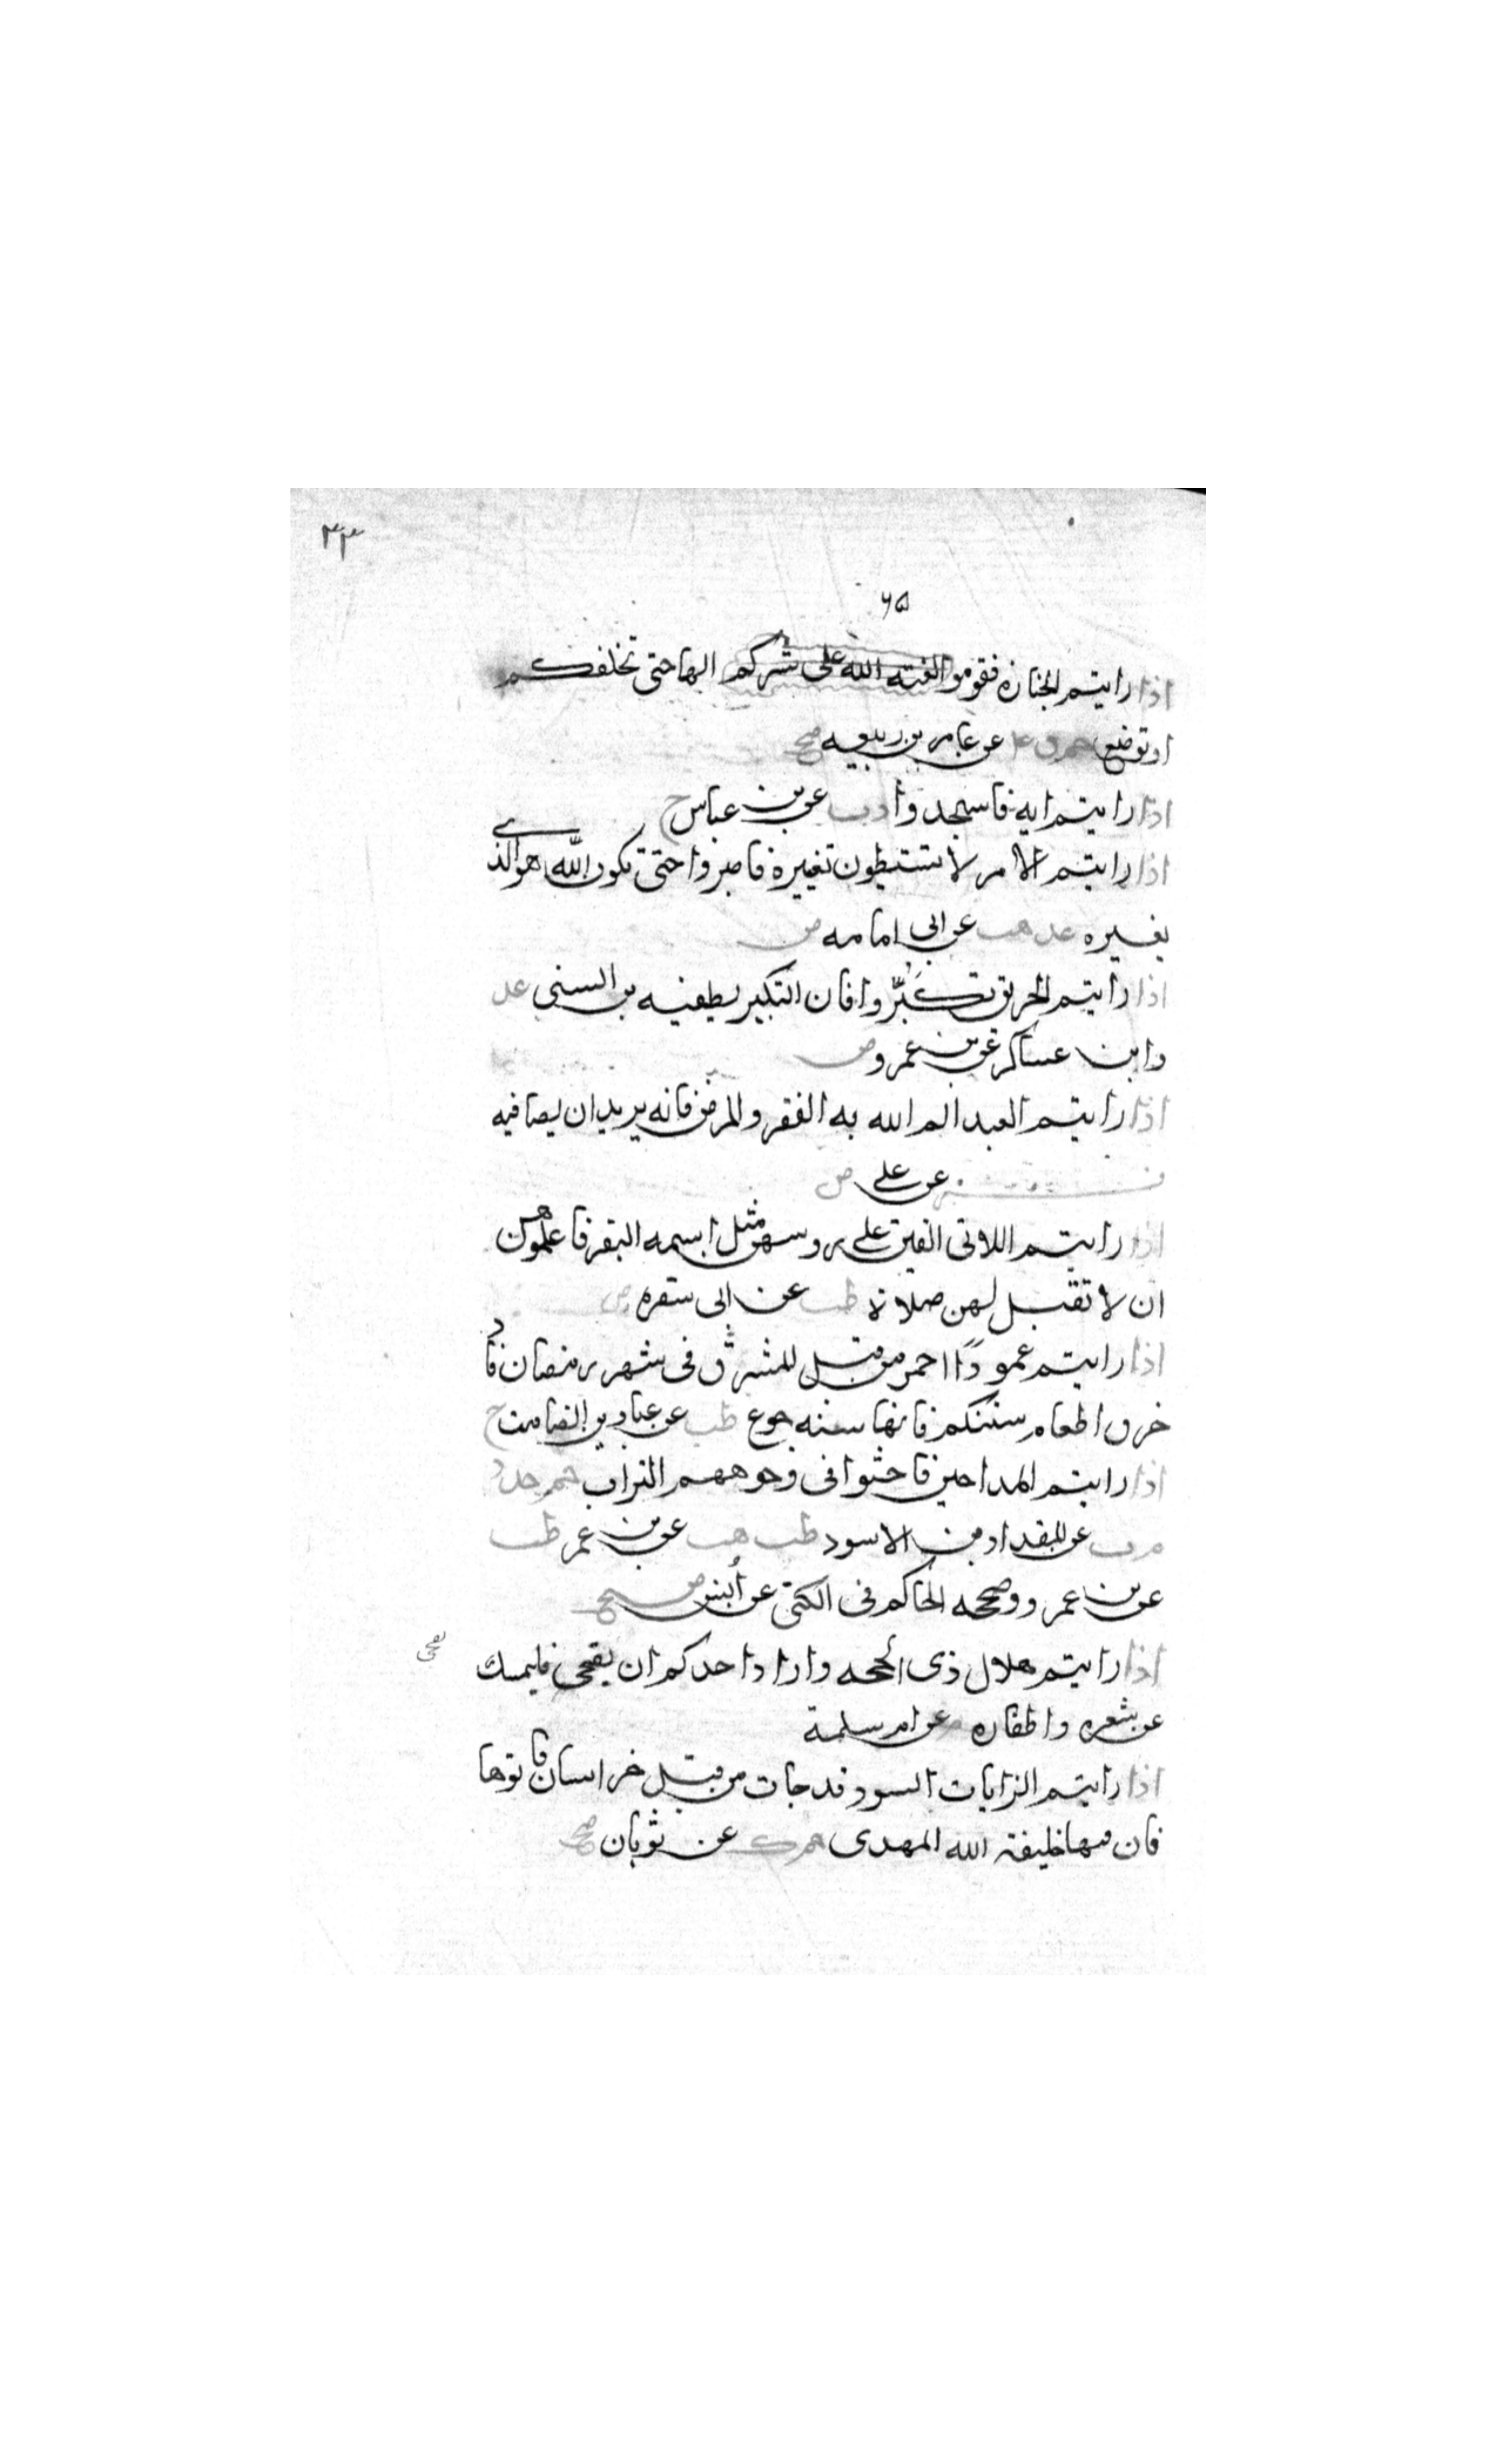 ٣٣
٦٥
اذا رايتم الجنازه فقوموا لعنته الله على شركم الها حتى تخلفكم
او توضع حم ق عن عامر بن ربيعه صح
اذا رايتم ايه فاسجدوا د ت عن بن عباس ح
اذا رايتم الامر لا تستطيون تغييره فاصبروا حتى يكون الله هو الذي
يغيره عد هب عن ابى امامه ض
اذا رايتم الحريق فكبّروا فان التكبير يطفيه بن السنى عد
وابن عساكر عن بن عمرو ض
اذا رايتم العبد الم الله به الفقر والمرض فانه يريد ان يصافيه
عن على ض
اذا رايتم اللاتى القين على روسهن مثل اسنمه البقر فاعلموهن
ان لا تقبل لهن صلاة طب عن ابى شقره ض
اذا رايتم عمودًا احمر من قبل المشرق فى شهر رمضان فاد
خروا طعام سنتكم فانها سنه جوع طب عن عباد بن الصامت ح
اذا رايتم المداحين فاحثوا فى وجوههم التراب حم خد د
م ت عن المقداد بن الاسود طب هب عن بن عمر طب
عن بن عمرو وصححه الحاكم فى الكنى عن أنس صح
اذا رايتم هلال ذى الحجه واراد احدكم ان يضحى فليمسك
يضحى
عن شعره واظفاره م عن ام سلمة
اذا رايتم الرايات السود قد جات من قبل خراسان فاتوها
فان فيها خليفة الله المهدى حم ك عن ثوبان صح